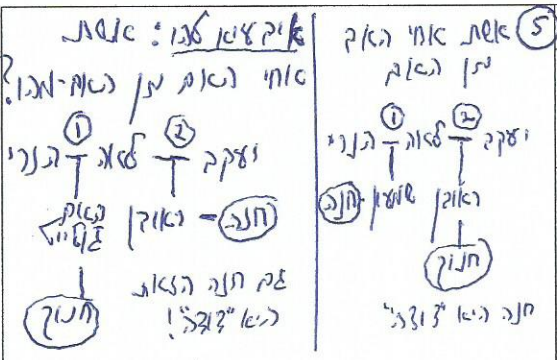 5 אשת אחי האב
מן האם
2 1
יעקב לאה הנרי
ראובן שמעון - חנה
חנוך
חנה היא "דודה"
איבעיא להו: אשת
אחי האם מן האם - מהו?
2 1
יעקב לאה הנרי
חנה - ראובן האם
חנוך
גם חנה הזאת
היא "דודה"!